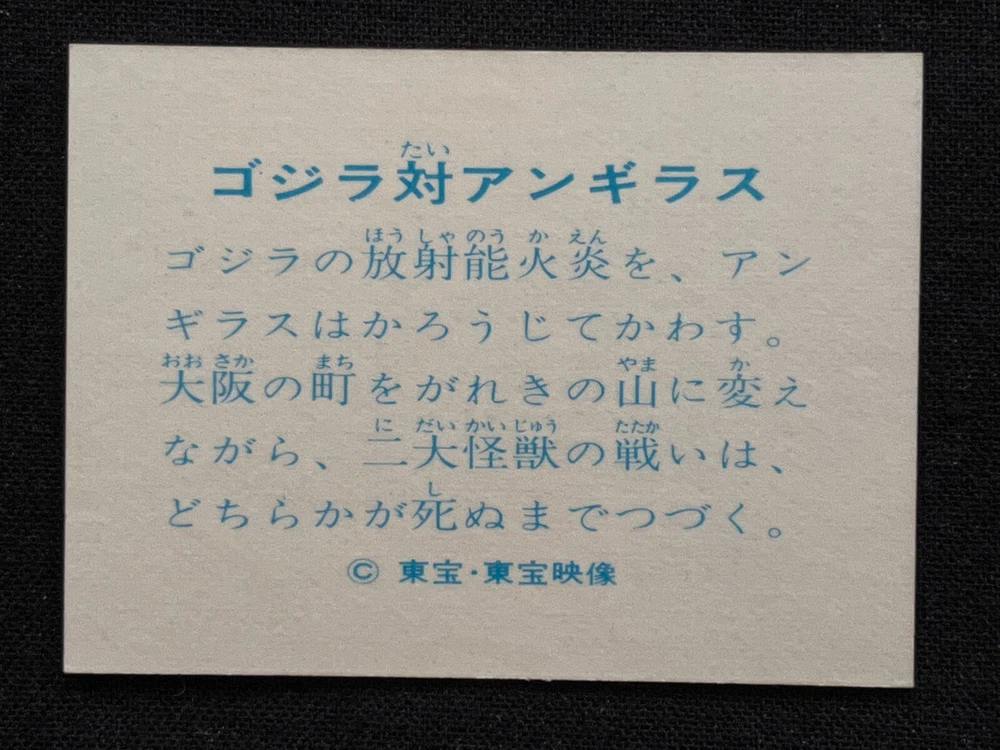 たい
ゴジラ対アンギラス
ほうしゃのうかえん
ゴジラの放射能火炎を、アン
ギラスはかろうじてかわす。
おおさか まち やま か
大阪の町をがれきの山に変え
に だいかいじゅう たたか
ながら、二大怪獣の戦いは、
し
どちらかが死ぬまでつづく。
© 東宝・東宝映像